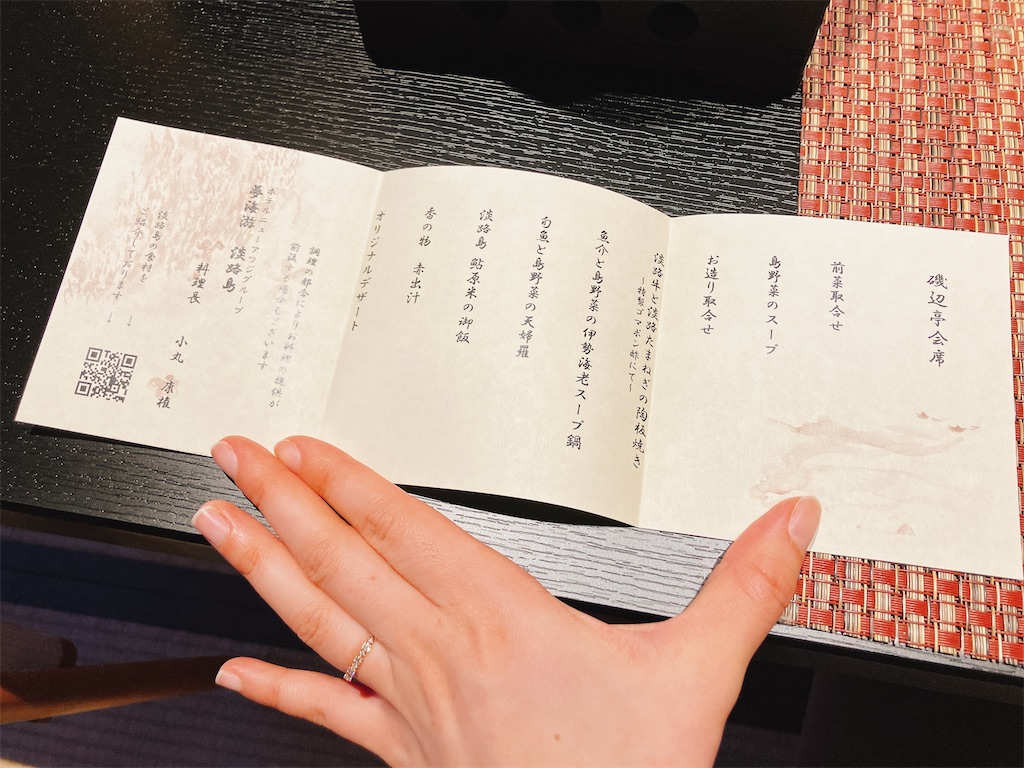 磯辺亭会席
前菜取合せ
島野菜のスープ
お造り取合せ
淡路牛と淡路たまねぎの陶板焼き
～特製ゴマポン酢にて～
魚介と島野菜の伊勢海老スープ鍋
旬魚と島野菜の天婦羅
淡路島 鮎原米の御飯
香の物 赤出汁
オリジナルデザート
調理の都合によりお料理の提供が
前後する場合もございます
ホテルニューアワジグループ
夢海游 淡路島
料理長 小丸 康植
淡路島の食材を
ご紹介しております
↓ ↓